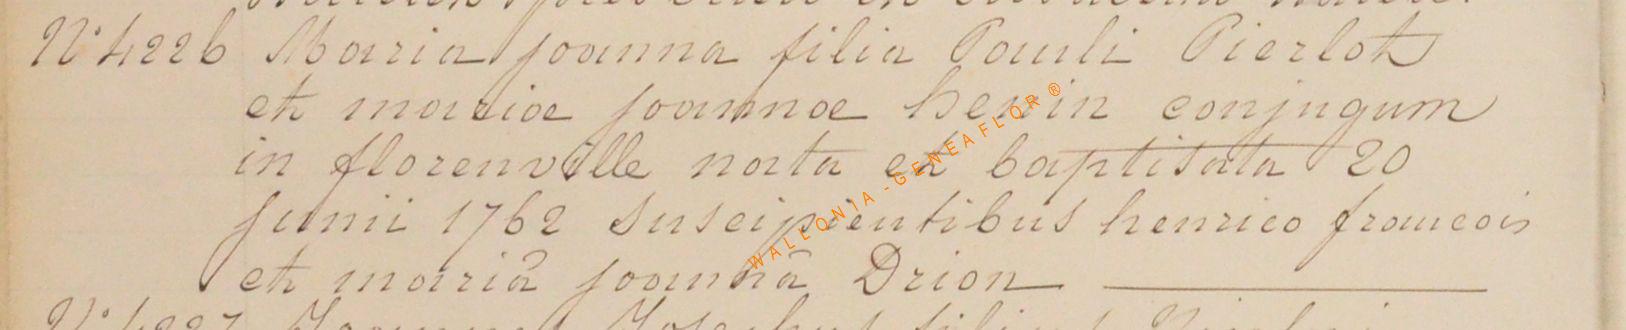 N° 4226 Maria joanna filia Pauli Pierlot
et mariae joannae henin conjugum
in florenville nata et baptisata 20
junii 1762 suscipientibus henrico francois
et mariâ joannâ Drion
WALLONIA - GENEAFLOR ®
N° 4227